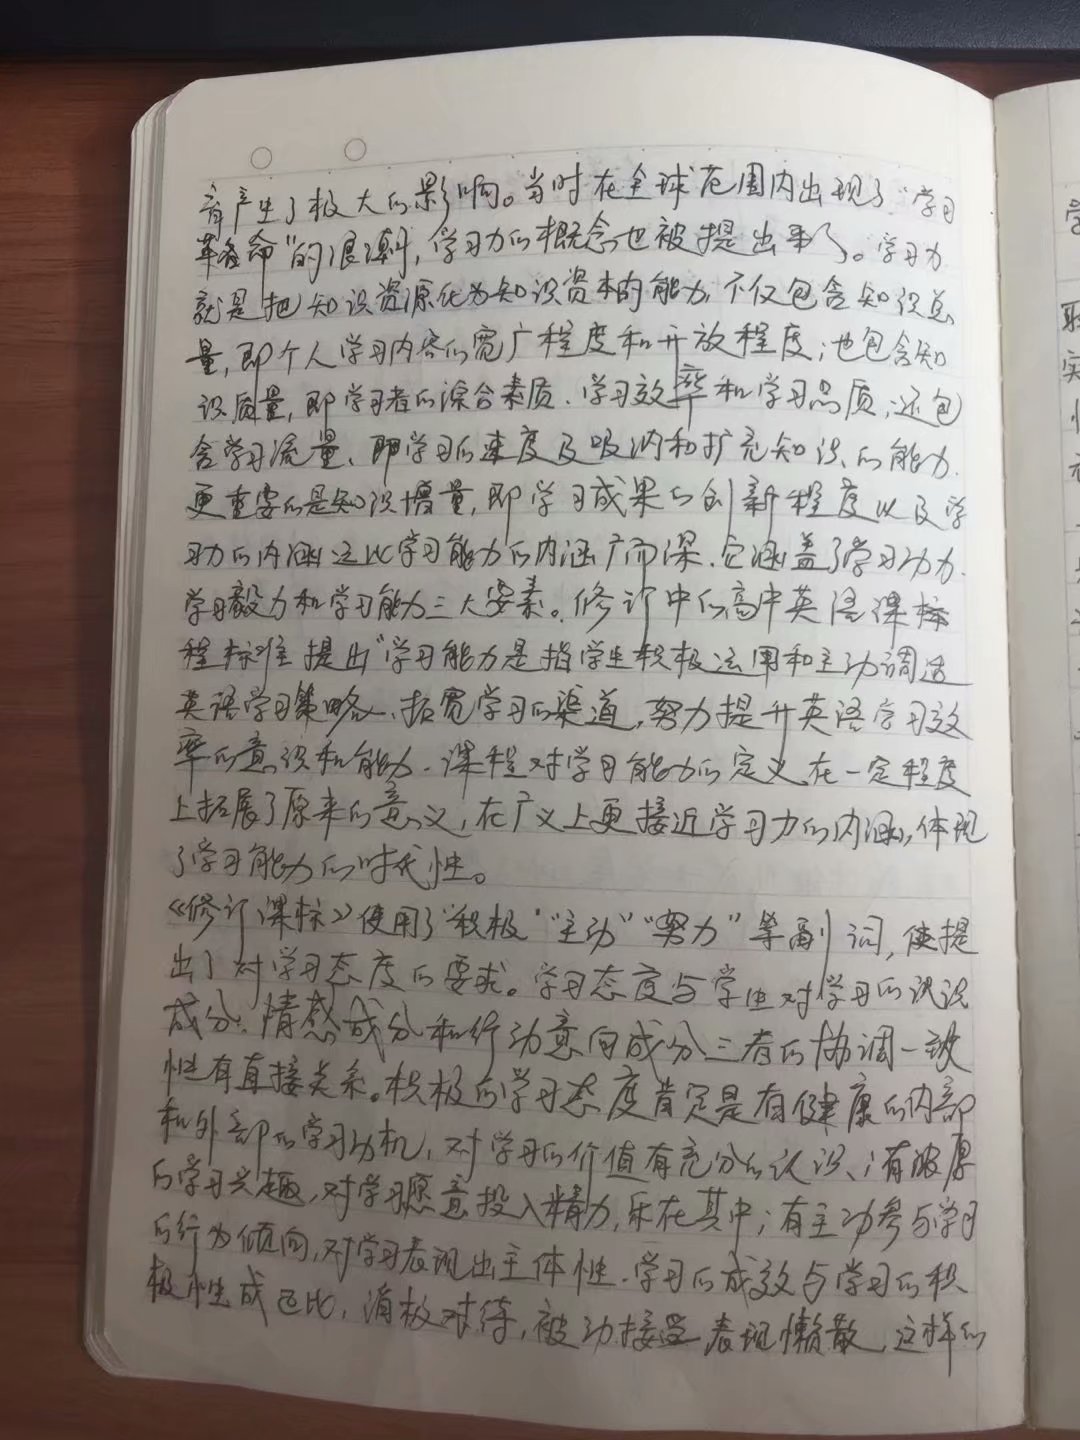 育产生了极大的影响。当时在全球范围内出现了“学习
革命”的浪潮，学习力的概念也被提出来了。学习力
就是把知识资源化为知识资本的能力，不仅包含知识总
量，即个人学习内容的宽广程度和开放程度；也包含知
识质量，即学习者的综合素质、学习效率和学习品质；还包
含学习流量、即学习的速度及吸纳和扩充知识的能力.
更重要的是知识增量，即学习成果的创新程度以及学
习力的内涵远比学习能力的内涵广而深.它涵盖了学习动力.
学习毅力和学习能力三大要素。修订中的高中英语课标
程标准提出“学习能力是指学生积极运用和主动调适
英语学习策略、拓宽学习的渠道，努力提升英语学习效
率的意识和能力.课程对学习能力的定义在一定程度
上拓展了原来的意义，在广义上更接近学习力的内涵，体现
了学习能力的时代性。
《修订课标》使用了“积极”“主动”“努力”等副词，使提
出了对学习态度的要求。学习态度与学生对学习的认识
成分、情感成分和行动意向成分三者的协调一致
性有直接关系。积极的学习态度肯定是有健康的内部
和外部的学习动机，对学习的价值有充分的认识；有浓厚
的学习兴趣，对学习愿意投入精力，乐在其中；有主动参与学习
的行为倾向，对学习表现出主体性.学习的成效与学习的积
极性成正比，消极对待，被动接受，表现懒散，这样的
学